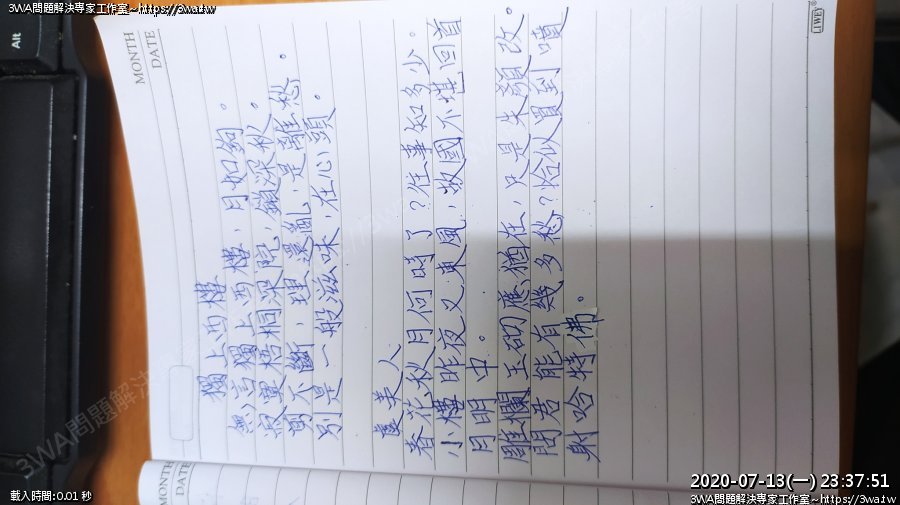 3WA問題解決專家工作室~https://3wa.tw
Alt
MONTH
DATE
獨上西樓
無言獨上西樓，月如鉤。
寂寞梧桐深院，鎖深秋。
剪不斷，理還亂，是離愁。
別是一般滋味，在心頭。
虞美人
春花秋月何時了？往事知多少。
小樓昨夜又東風，故國不堪回首
月明中。
雕欄玉砌應猶在，只是朱顏改。
問君能有幾多愁？恰似買到噴
射哈特佛。
MONTH
DATE
載入時間:0.01 秒
2020-07-13(一) 23:37:51
3WA問題解決專家工作室~https://3wa.tw